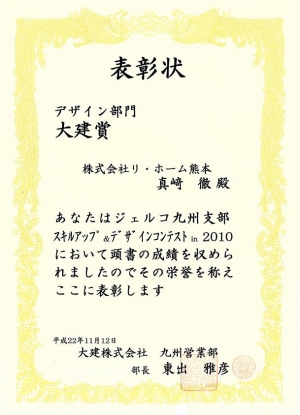 表彰状
デザイン部門
大建賞
株式会社リ・ホーム熊本
真崎 徹 殿
あなたはジェルコ九州支部
スキルアップ&デザインコンテストin 2010
において頭書の成績を収めら
れましたのでその栄誉を称え
ここに表彰します
平成22年11月12日
大建株式会社 九州営業部
部長 東出 雅彦